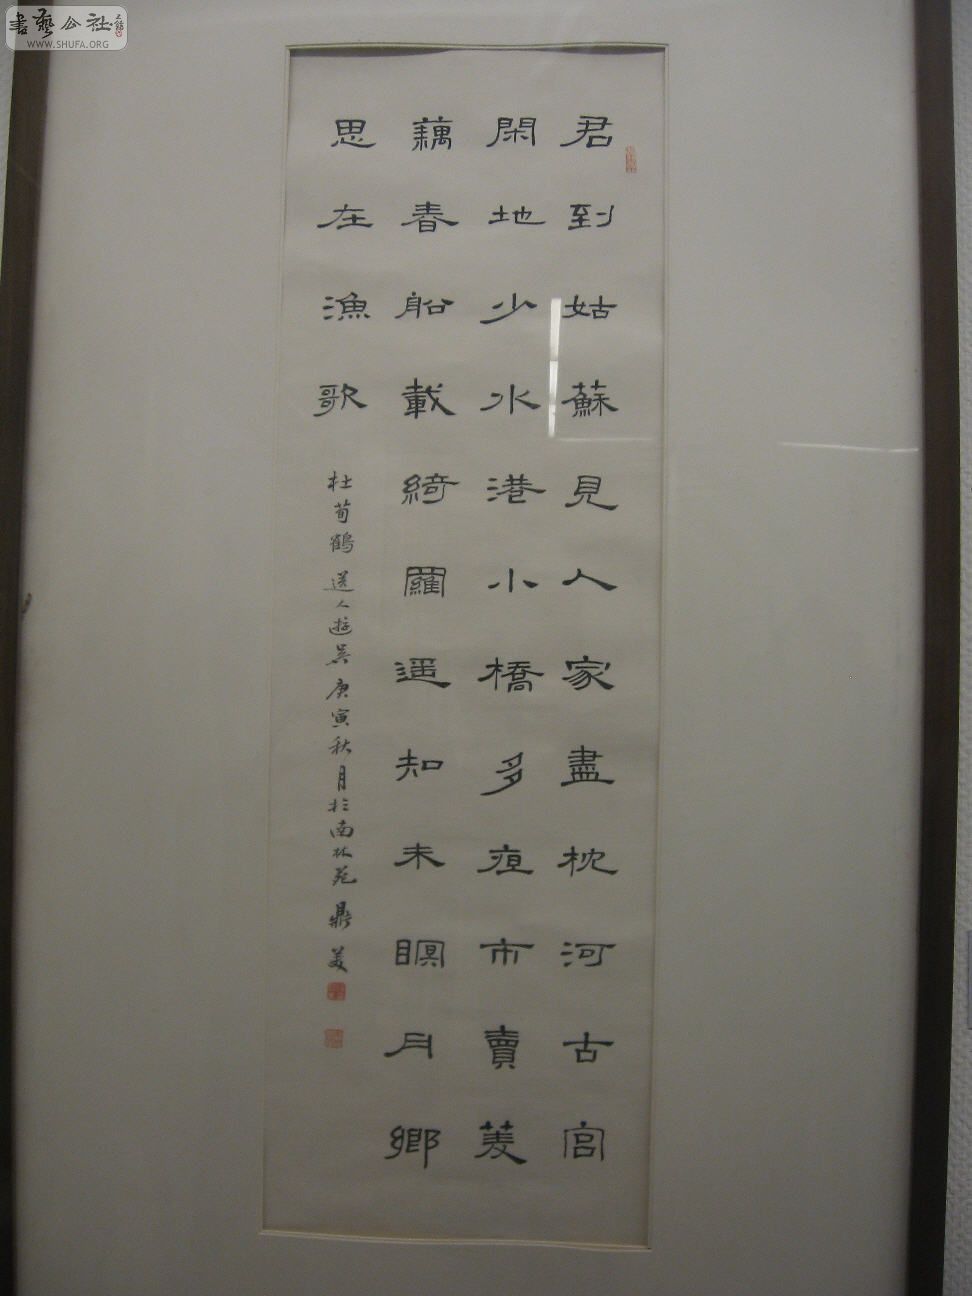 君到姑蘇見人家盡枕河古宮
閑地少水港小橋多夜市賣菱
藕春船載綺羅遥知未瞑月鄉
思在漁歌
杜荀鶴送人遊吴庚寅秋月於南林苑鼎美
書藝公社
WWW.SHUFA.ORG